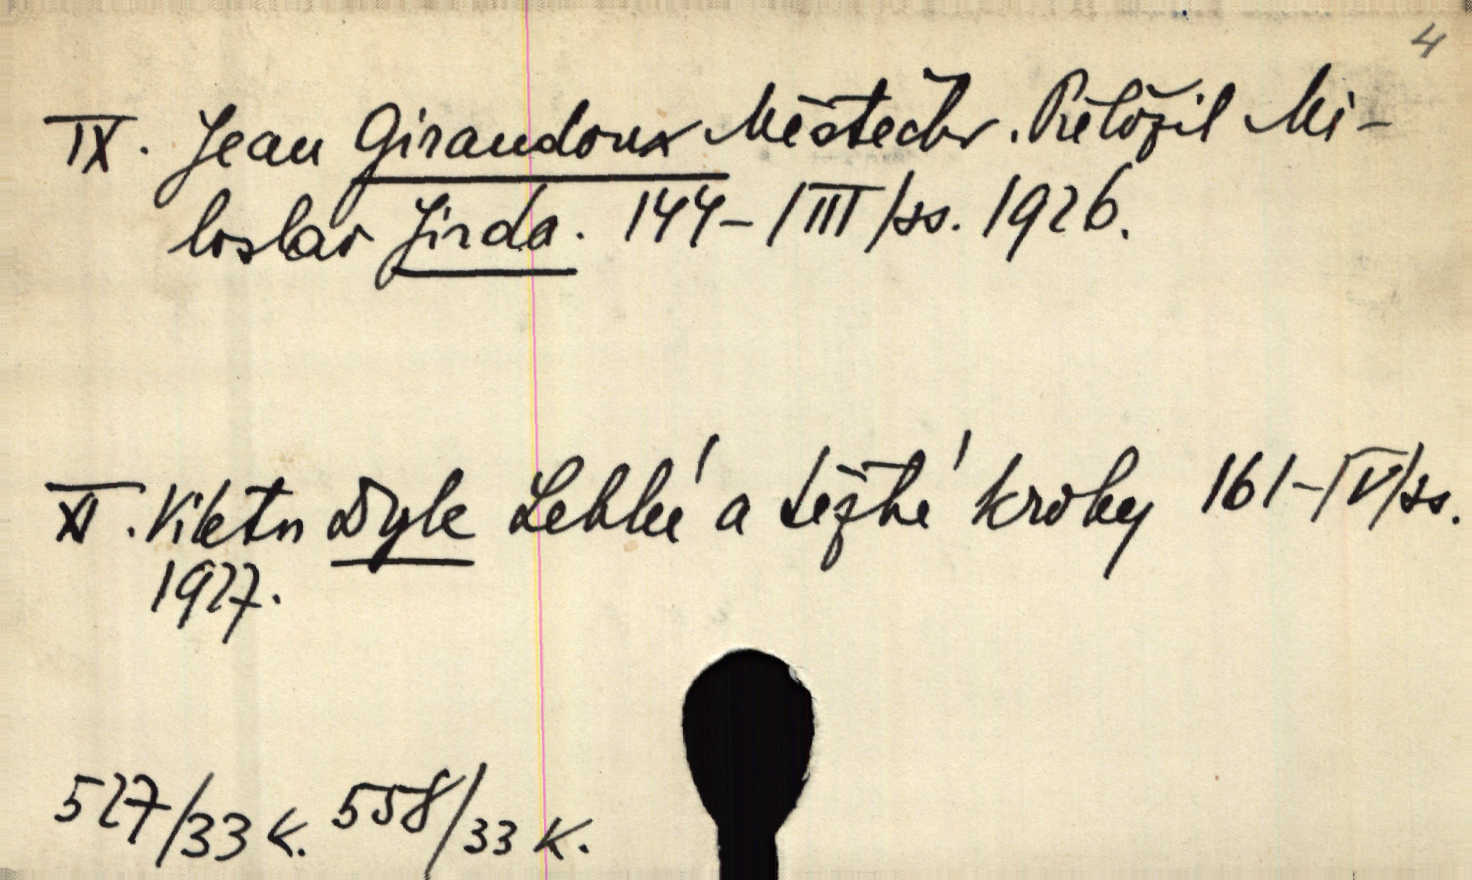 4
IX. Jean Giraudoux Městečko. Přeložil Mi-
loslav Jirda. 144-/III/ss. 1926.
XI. Viktor Dyk Lehké a těžké kroky 161-/IV/ss.
1927.
527/33 K. 558/33 K.